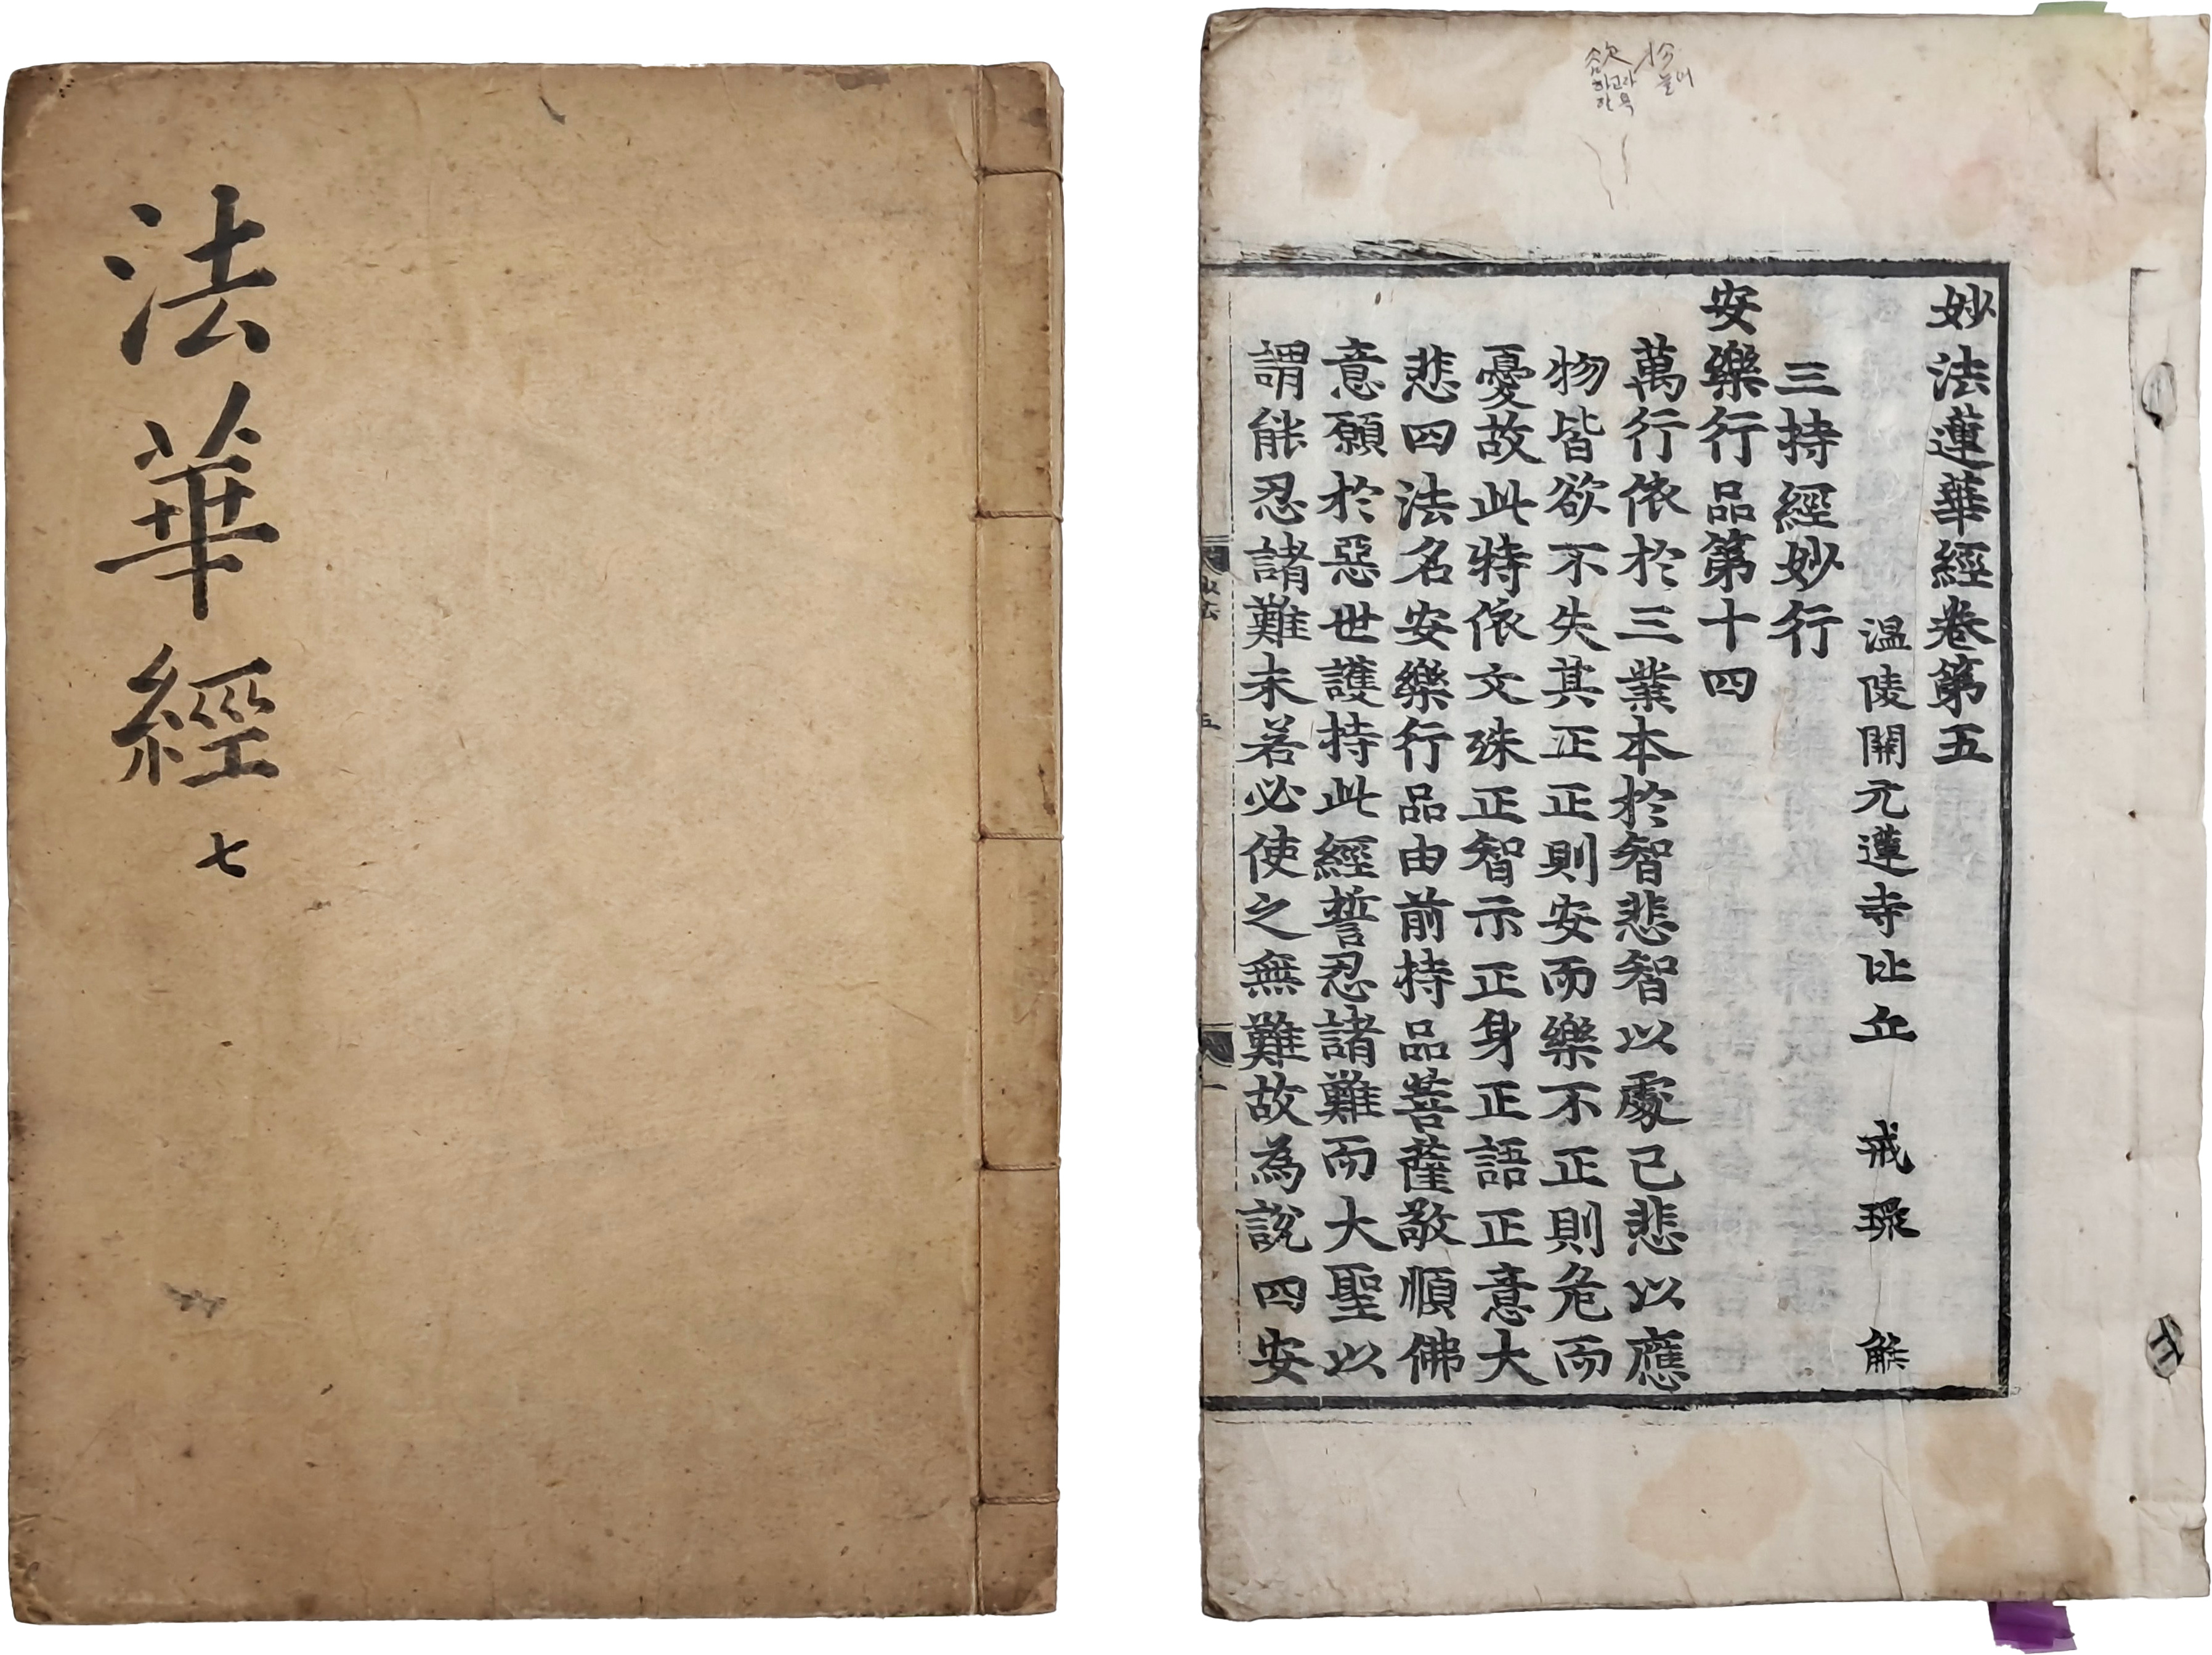 法華經 七
妙法蓮華經卷第五
溫陵開元蓮寺比丘 戒環 解
三持經妙行
安樂行品第十四
萬行依於三業本於智悲智以處己悲以應
物皆欲不失其正正則安而樂不正則危而
憂故此特依文殊正智示正身正語正意大
悲四法名安樂行品由前持品菩薩敬順佛
意願於惡世護持此經誓忍諸難而大聖以
謂能忍諸難未若必使之無難故為說四安
妙法 五 一